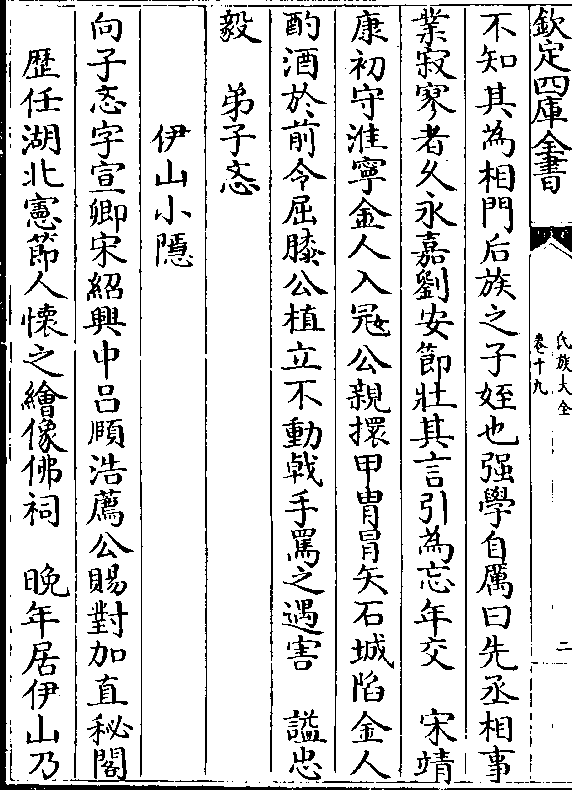 欽定四庫全書
氏族大全
卷十九
二
不知其為相門后族之子姪也强學自厲曰先丞相事
業寂寥者久永嘉劉安節壯其言引為忘年交　宋靖
康初守淮寧金人入冦公親擐甲冑冒矢石城陷金人
酌酒於前令屈膝公植立不動㦸手罵之遇害　諡忠
毅　弟子忞
伊山小隱
向子忞字宣卿宋紹興中吕頤浩薦公賜對加直秘閣
歴任湖北憲節人懐之繪像佛祠　晚年居伊山乃